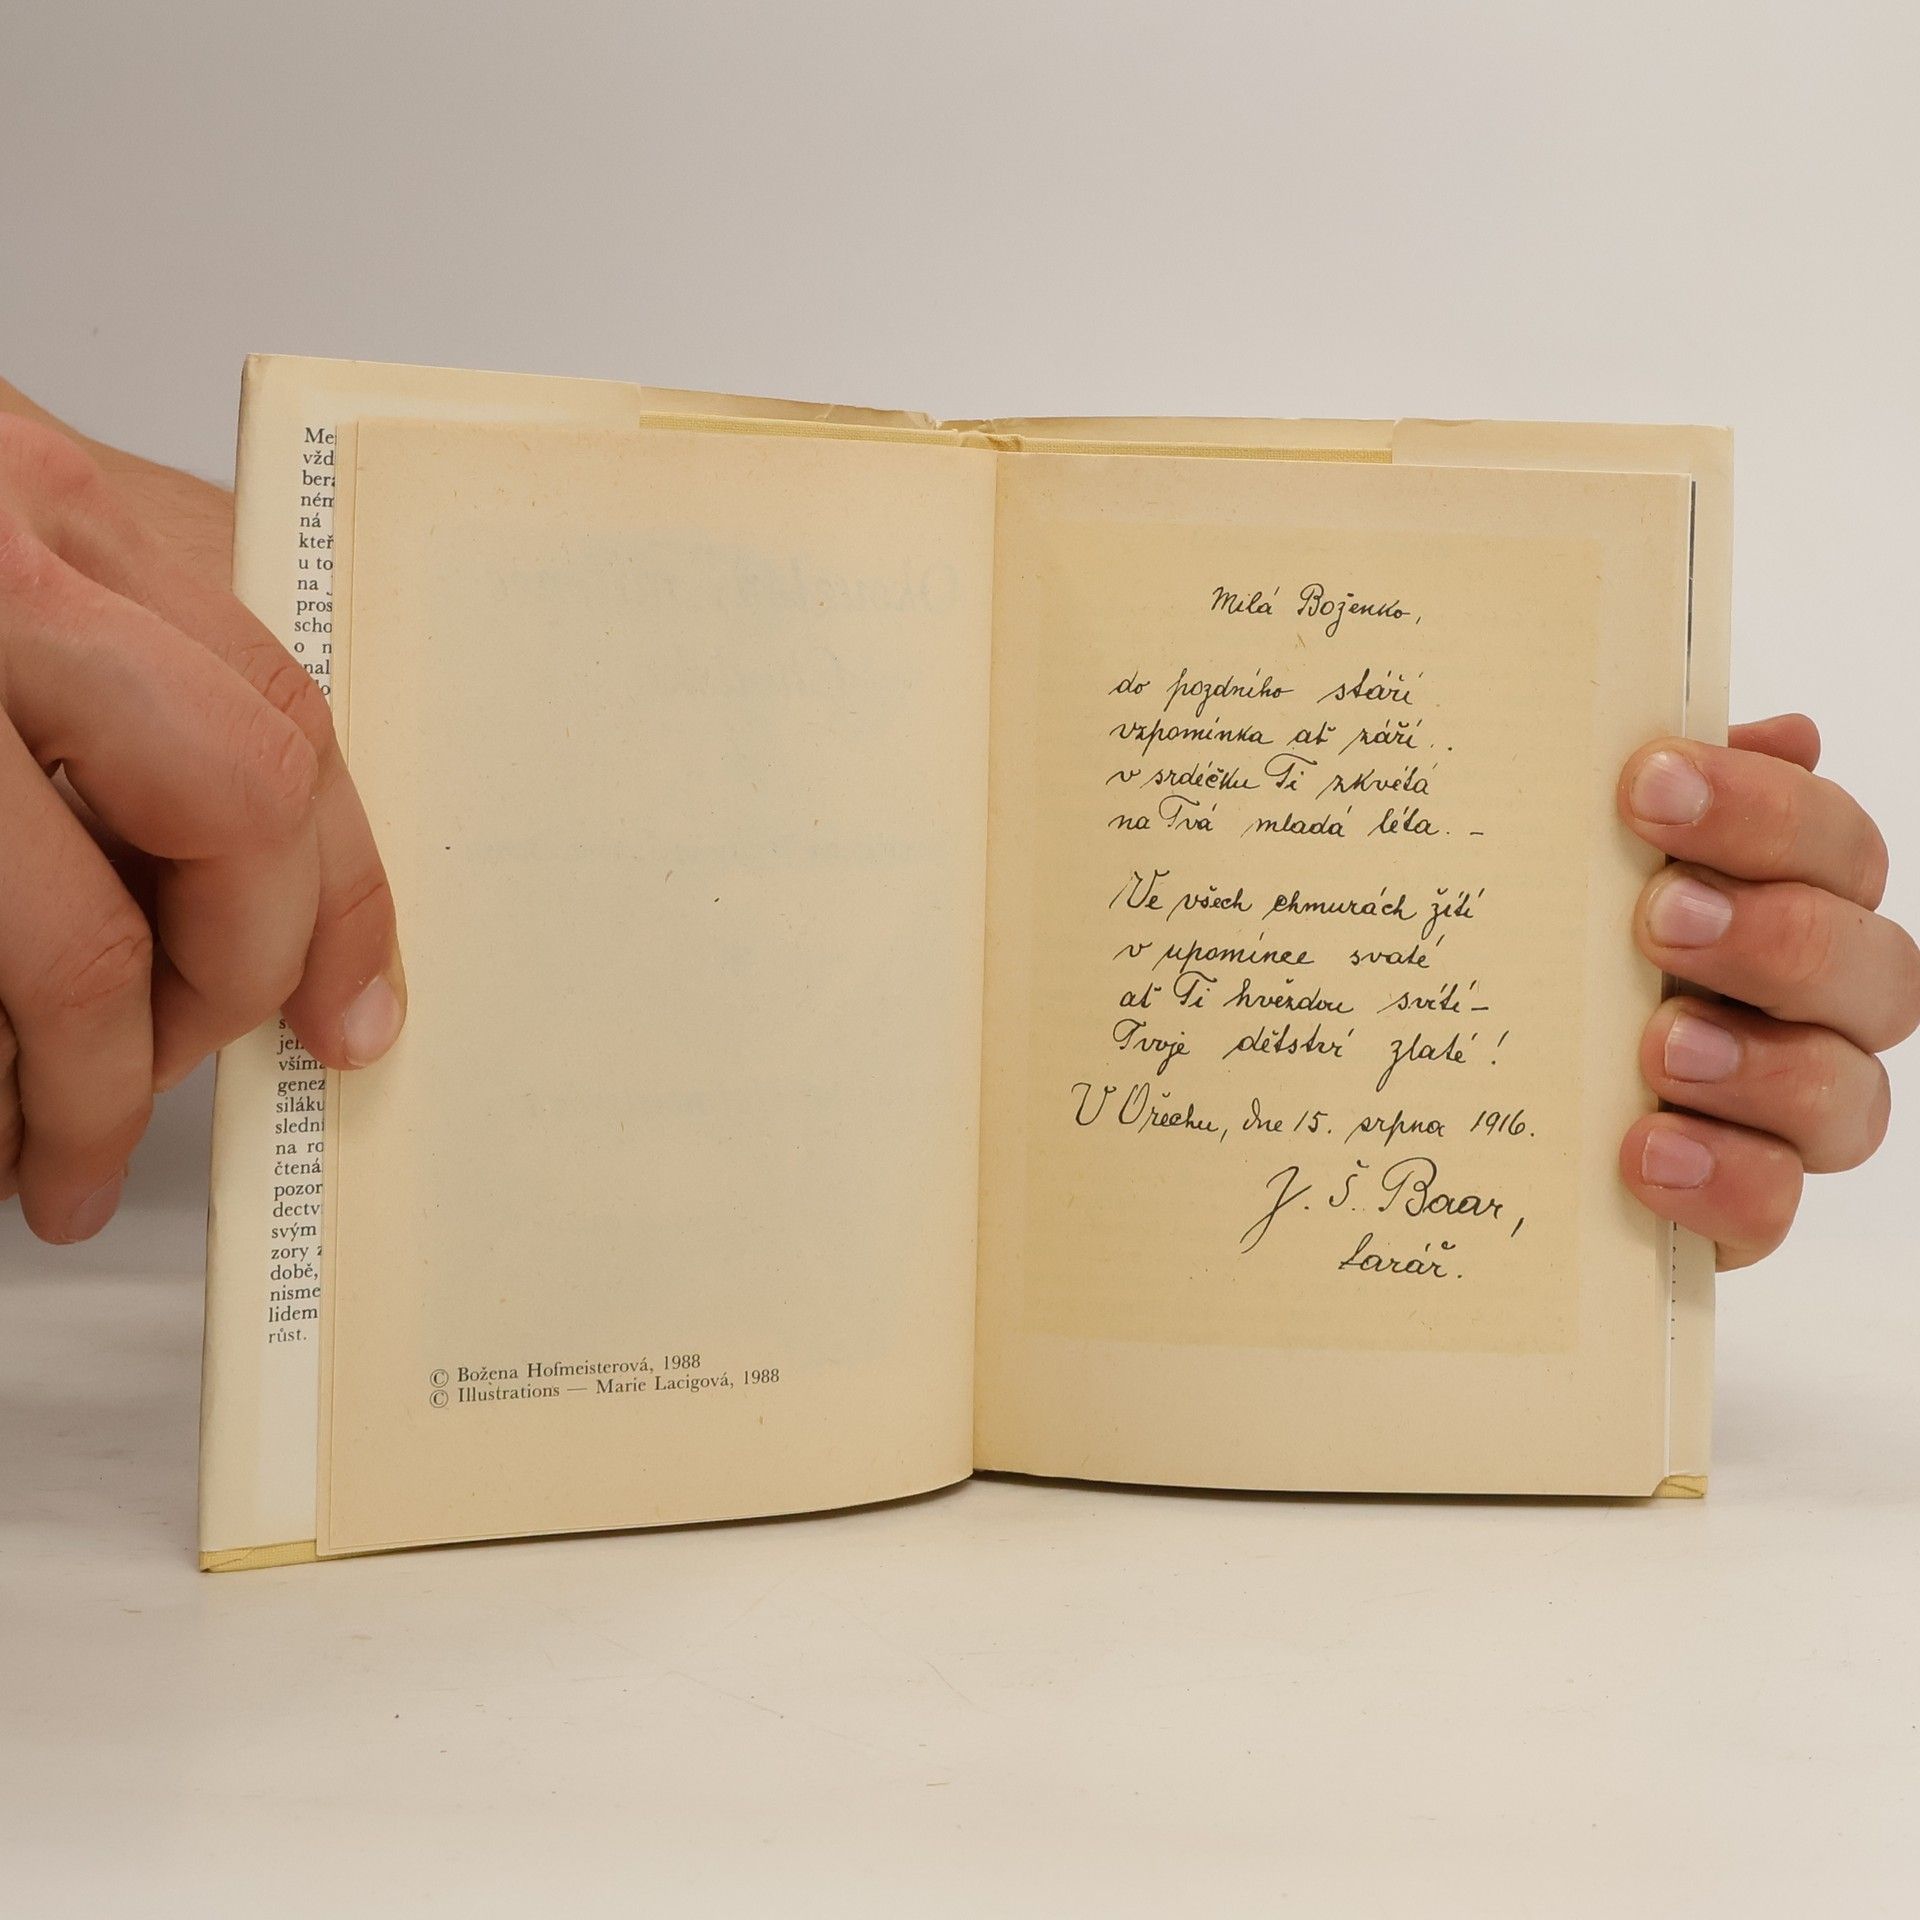 vžd
ném
ná
kteř
u to
na
pros
scho
o n
vším
genez
siláku
sledn
na ro
čtená
pozor
dectv
svým
zory z
době,
nisme
lidem
růst.
© Božena Hofmeisterová, 1988
© Illustrations — Marie Lacigová, 1988
Milá Boženko,
do pozdního stáří
vzpomínka ať září..
v srdéčku Ti zkvétá
na Tvá mladá léta. –
Ve všech chmurách žití
v upomínce svaté
ať Ti hvězdou svítí –
Tvoje dětství zlaté!
V Ořechu, dne 15. srpna 1916.
J. Š. Baar,
farář.